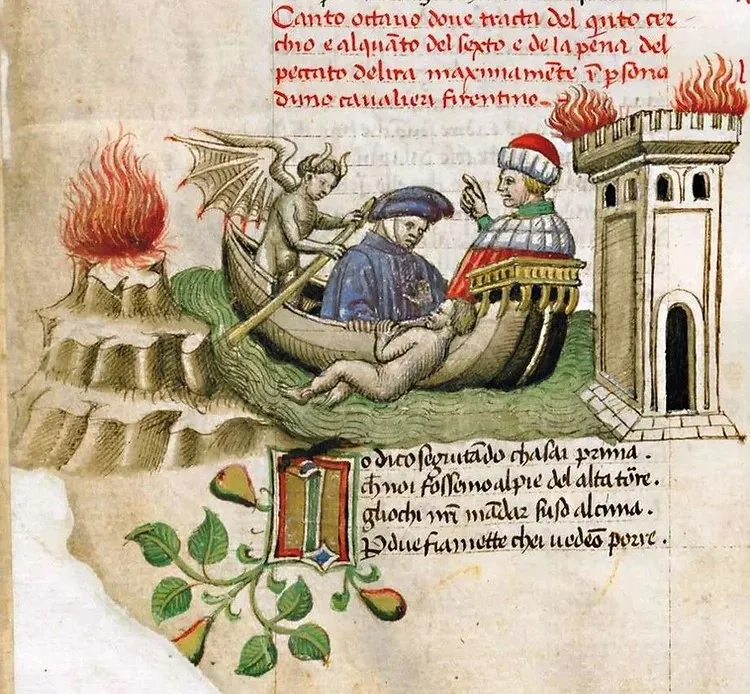 Canto octauo doue tracta del q̃nto cer
chio e alquãto del sexto e de la pena del
peccato de lira maximamẽte ĩ p̃sona
duno caualieri firentino.
Io dico seguitãdo chasai prima.
ch noi fossemo al pie del alta tõre.
gliochi nr̃i mãdar suso al cima.
P due fiamette chei uedẽo porre.